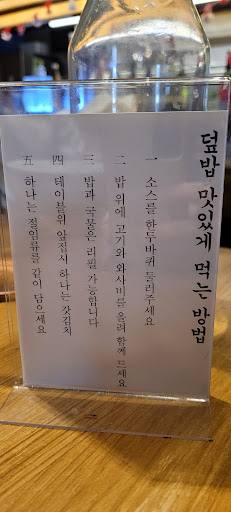 덮밥 맛있게 먹는 방법
一 소스를 한두바퀴 둘러주세요
二 밥 위에 고기와 와사비를 올려 함께 드세요
三 밥과 국물은 리필 가능합니다
四 테이블의 앞접시 하나는 갓김치
五 하나는 절임류를 같이 담으세요